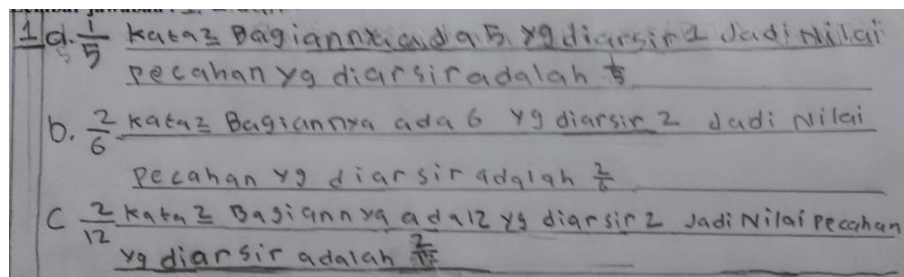 1 d. 1/5 kata2 Bagiannya ada 5 yg diarsir 1 Jadi Nilai
pecahan yg diarsir adalah 1/5
b. 2/6 kata2 Bagiannya ada 6 yg diarsir 2 Jadi Nilai
pecahan yg diarsir adalah 2/6
C 2/12 kata2 Bagiannya ada 12 yg diarsir 2 Jadi Nilai pecahan
yg diarsir adalah 2/12